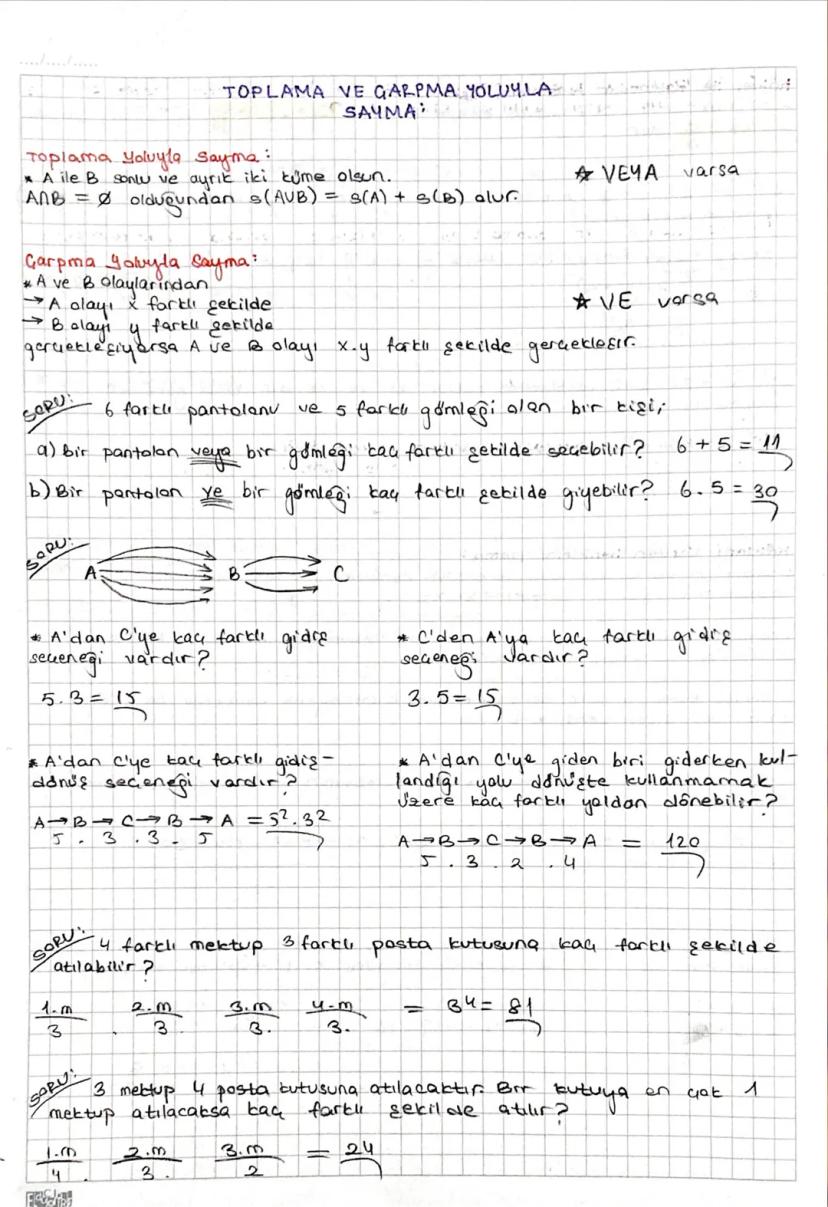 TOPLAMA VE ÇARPMA YOLUYLA
SAYMA:
Toplama Yoluyla Sayma:
* A ile B sonlu ve ayrık iki küme olsun.
A∩B = ∅ olduğundan s(A∪B) = s(A) + s(B) olur.
☆ VEYA varsa
Çarpma Yoluyla Sayma:
* A ve B olaylarından
→ A olayı x farklı şekilde
→ B olayı y farklı şekilde
gerçekleşiyorsa A ve B olayı x.y farklı şekilde gerçekleşir.
☆ VE varsa
SORU: 6 farklı pantolonu ve 5 farklı gömleği olan bir kişi;
a) Bir pantolon veya bir gömleği kaç farklı şekilde seçebilir? 6 + 5 = 11
b) Bir pantolon ve bir gömleği kaç farklı şekilde giyebilir? 6.5 = 30
SORU:
A B C
* A'dan C'ye kaç farklı gidiş
seçeneği vardır?
5.3 = 15
* C'den A'ya kaç farklı gidiş
seçeneği vardır?
3.5 = 15
* A'dan C'ye kaç farklı gidiş-
dönüş seçeneği vardır?
A→B→C→B→A = 5².3²
5 . 3 . 3 . 5
* A'dan C'ye giden biri giderken kul-
landığı yolu dönüşte kullanmamak
üzere kaç farklı yoldan dönebilir?
A→B→C→B→A = 120
5 . 3 . 2 . 4
SORU: 4 farklı mektup 3 farklı posta kutusuna kaç farklı şekilde
atılabilir?
1.m 2.m 3.m 4.m = 3⁴ = 81
3 . 3 . 3 . 3.
SORU: 3 mektup 4 posta kutusuna atılacaktır. Bir kutuya en çok 1
mektup atılacaksa kaç farklı şekilde atılır?
1.m 2.m 3.m = 24
4 . 3 . 2